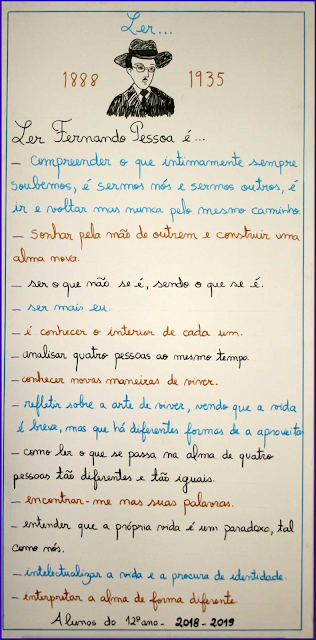 Ler...
1888 1935
Ler Fernando Pessoa é...
— Compreender o que intimamente sempre
soubemos, é sermos nós e sermos outros, é
ir e voltar mas nunca pelo mesmo caminho.
— Sonhar pela mão de outrem e construir uma
alma nova.
— ser o que não se é, sendo o que se é.
— ser mais eu.
— é conhecer o interior de cada um.
— analisar quatro pessoas ao mesmo tempo.
— conhecer novas maneiras de viver.
— refletir sobre a arte de viver, vendo que a vida
é breve, mas que há diferentes formas de a aproveitar
— como ler o que se passa na alma de quatro
pessoas tão diferentes e tão iguais.
— encontrar-me nas suas palavras.
— entender que a própria vida é um paradoxo, tal
como nós.
— intelectualizar a vida e a procura de identidade.
— interpretar a alma de forma diferente.
Alunos do 12º ano - 2018 - 2019